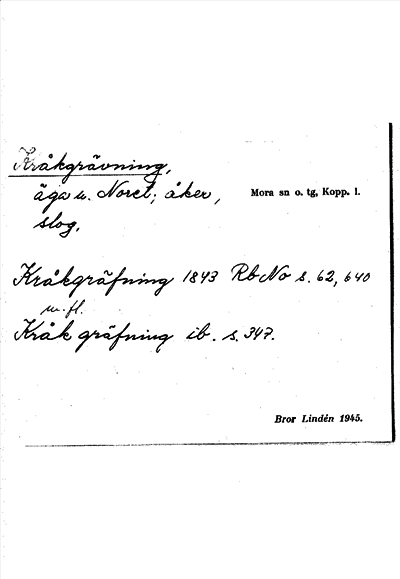 Kråkgrävning,
äga u. Noret; åker,
slog.
Mora sn o. tg, Kopp. l.
Kråkgräfning 1843 Rb No s. 62, 640
m. fl.
Kråk gräfning ib. s. 347.
Bror Lindén 1945.